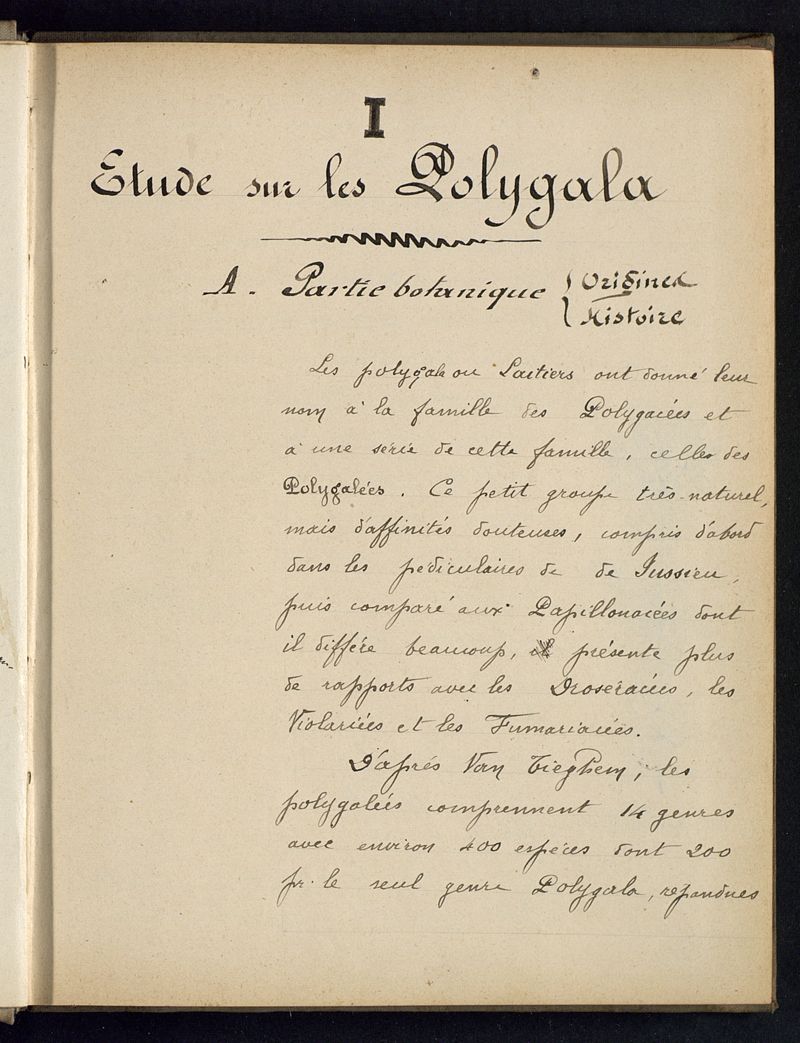 I
Etude sur les Polygala
A. Partie botanique { Origines
Histoire
Les polygala ou Laitiers ont donné leur
nom à la famille des Polygacées et
à une série de cette famille, celles des
Polygalées. Ce petit groupe très-naturel,
mais d'affinités douteuses, compris d'abord
dans les pediculaires de de Jussieu,
puis comparé aux Papillonacées dont
il différe beaucoup, présente plus
de rapports avec les Droseracées, les
Violariées et les Fumariacées.
D'après Van Tieghem, les
polygalées comprennent 14 genres
avec environ 400 espéces dont 200
pr. le seul genre Polygala, repandues